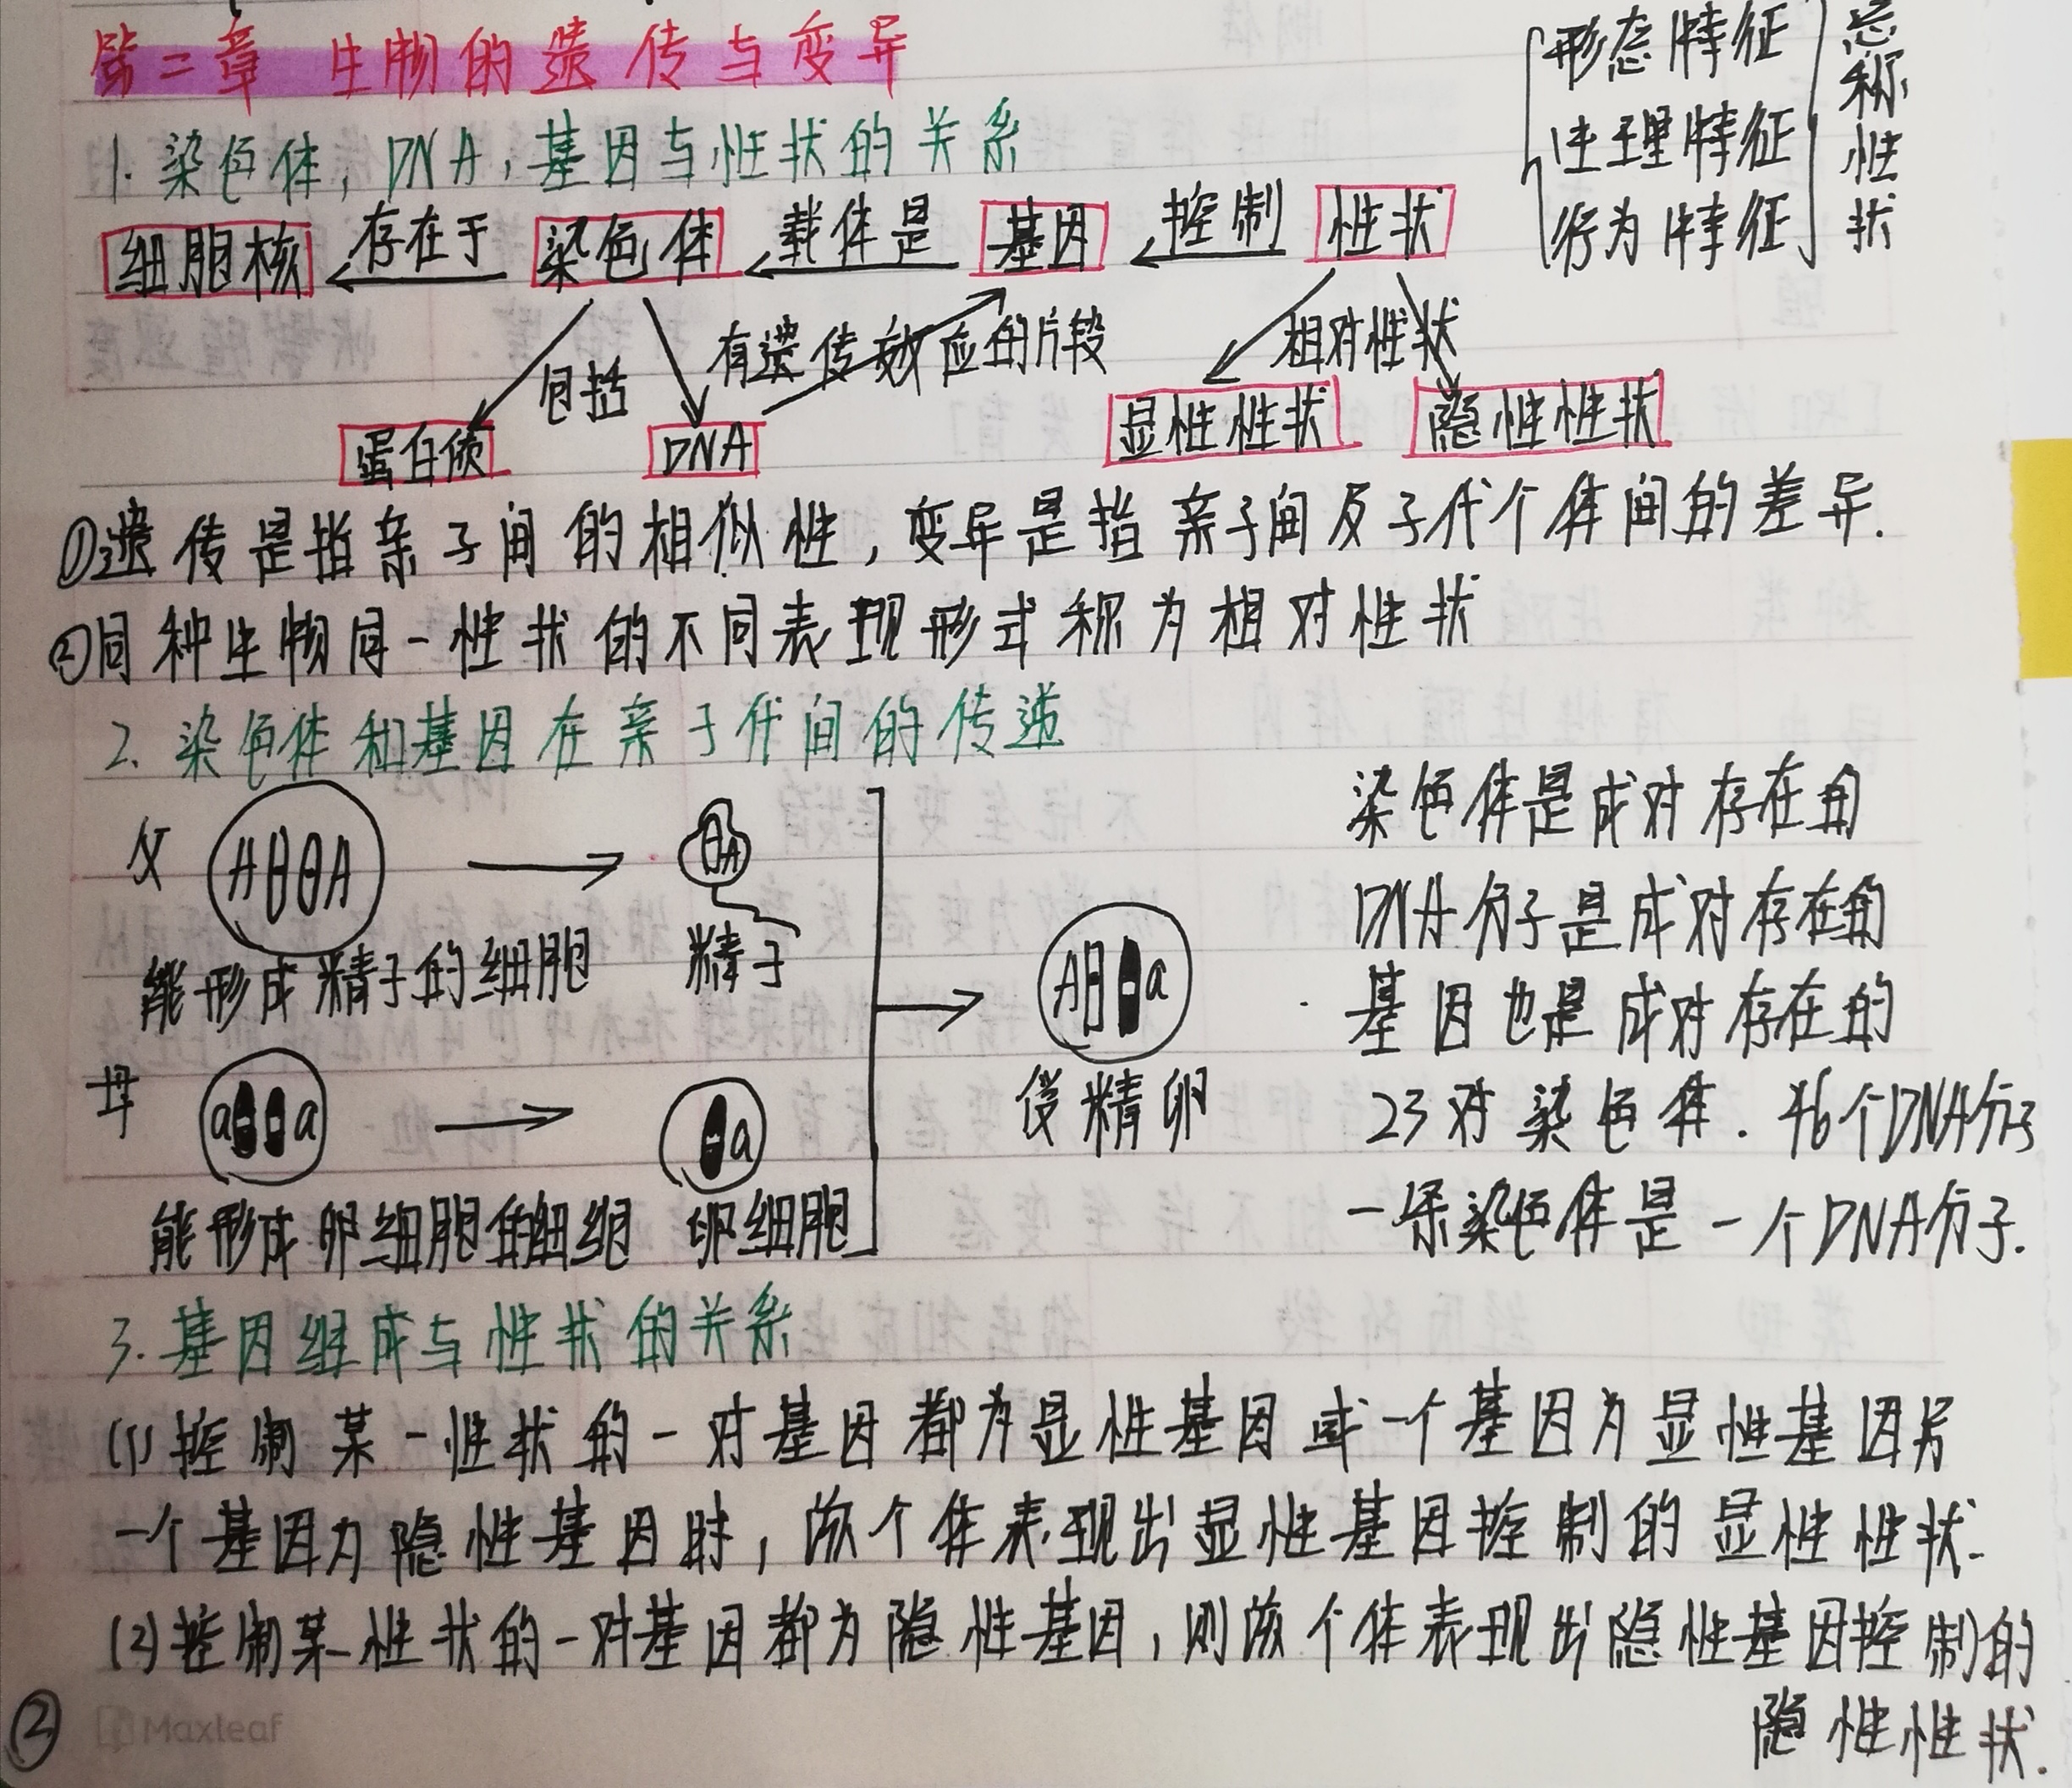 第二章 生物的遗传与变异
形态特征
生理特征
行为特征
总称性状
1. 染色体, DNA, 基因与性状的关系
细胞核 存在于 染色体 载体是 基因 控制 性状
包括 有遗传效应的片段 相对性状
蛋白质 DNA 显性性状 隐性性状
①遗传是指亲子间的相似性, 变异是指亲子间及子代个体间的差异.
②同种生物同一性状的不同表现形式称为相对性状
2. 染色体和基因在亲子代间的传递
父 A A A
能形成精子的细胞 精子
母 a a a
能形成卵细胞的细胞 卵细胞
A a
受精卵
染色体是成对存在的
DNA分子是成对存在的
基因也是成对存在的
23对染色体. 46个DNA分子
一条染色体是一个DNA分子.
3. 基因组成与性状的关系
(1)控制某一性状的一对基因都为显性基因或一个基因为显性基因另
一个基因为隐性基因时, 该个体表现出显性基因控制的显性性状.
(2)控制某一性状的一对基因都为隐性基因, 则该个体表现出隐性基因控制的
隐性性状.
② Maxleaf